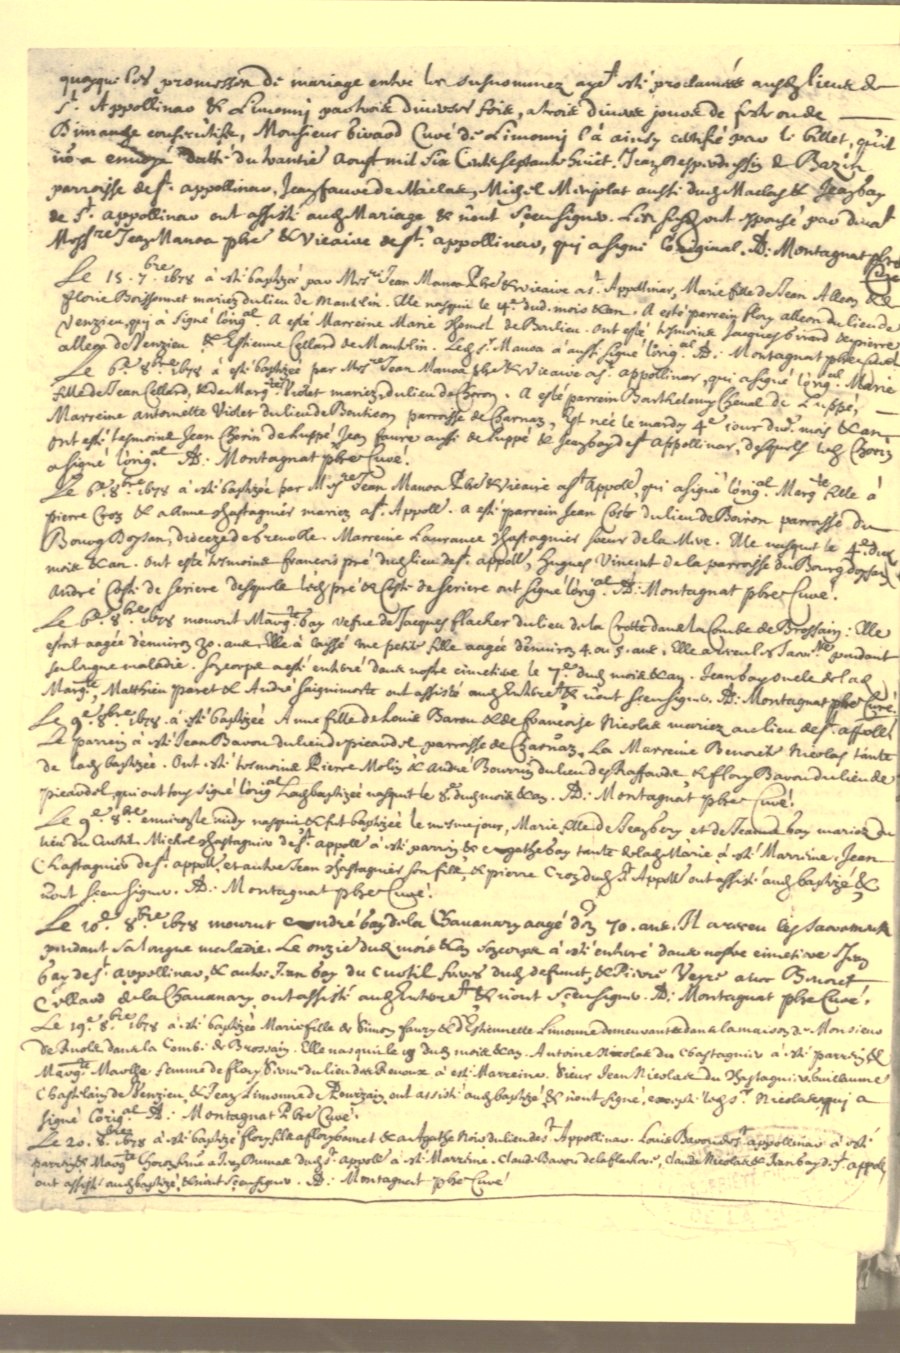 promesses de mariage entre les susnommez ayt esté proclamées auxd lieux de
St Appollinar & Limony par trois diverses fois, a trois divers jours de festes ou de
Dimanche Monsieur Curé de Limony l'a ainsy certifié par le billet, qu'il
m'a envoyé datté du aoust mil six Cents septante huict. Jean
parroisse de St. appollinar, Jean faure de Maclas, Michel aussi dud Maclas & Jean bay
de St. appollinar ont assisté aud Mariage & n'ont sceu signer. Les susd ont espousé par devat
Mossre Jean Manoa pbre & Vicaire de St. appollinar, qui a signé l'original. A: Montagnat pbre
Curé
Le 15. 7.bre 1678 à esté baptizée par Mre Jean Manoa Pbre & Vicaire a St. Appollinar, Marie fille de Jean Alleon & de
florie mariez du lieu de Mantelin. Elle nasquit le 4e dud. mois & an. A esté parrein flory alleon du lieu de
Venzieu, qui à signé l'orig.al A esté Marreine Marie de Beulieu. Ont esté tesmoins Jacques de pierre
alleon de Venzieu & Estienne Cellard de Mantelin. Led Sr. Manoa à aussi signé l'orig.al A: Montagnat pbre Curé
Le 6e 8.bre 1678 à esté baptizée par Mre Jean Manoa pbre & Vicaire a St. appollinar, qui a signé l'orig.al Marie
fille de Jean Cellard, & de Marg.te Violet mariez du lieu de . A esté parrein Barthelemy Cheval de Luppé,
Marreine antoinette Violet du lieu de parroisse de Charnas, Est née le mardy 4e jour dud. mois & an,
ont esté tesmoins Jean Chorin de Luppé, Jean faure aussi de Luppé & Jean bay de St Appollinar, desquels led Chorin
a signé l'orig.al A: Montagnat pbre Curé.
Le 6e. 8.bre 1678 à esté baptizée par Mre Jean Manoa Pbre & Vicaire a St Appoll.r, qui a signé l'orig.al Marg.te fille à
pierre Croz & a Anne Chastagnier mariez a St. Appoll.r. A esté parrein Jean Coste du lieu de parroisse du
Bourg Doysan, dioceze de Grenoble. Marreine Laurance Chastagnier soeur de la Mere. Elle nasquit le 4e dud
mois & an. Ont esté tesmoins francois pré dud lieu de St. appoll.r, Hugues Vincent de la parroisse du Bourg doysan,
André Coste de Seriere desquels led pré & Coste de Seriere ont signé l'orig.al A: Montagnat pbre Curé.
Le 6e. 8.bre 1678 mourut Marg.te bay vefve de Jacques flacher du lieu de la Crotte dans la Combe de Brossain: Elle
estoit aagée d'environ 30. ans. Elle à laissé une petite fille aagée d'environ 4. ou 5. ans. Elle a receu les Sacre.ts pendant
sa longue maladie. Son corps a esté enterré dans nostre cimetiere le 7.e dud mois & an. Jean bay oncle de lad
Marg.te, Matthieu paret & André Saignimorte ont assisté aud Enterre.t & n'ont sceu signer. A: Montagnat pbre Curé.
Le 9.e 8.bre 1678. à esté baptizée Anne fille de Louis Barou & de francoise Nicolas mariez au lieu de St. appoll.r
Le parrein à esté Jean Barou du lieu de picardel parroisse de Charnas, La Marreine Benoite Nicolas tante
de lad baptizée. Ont esté tesmoins Pierre Molin & André Bourrin du lieu des Raffards & flory Barou du lieu de
picardel, qui ont tous signé l'orig.al Lad baptizée nasquit le 8.e dud mois & an. A: Montagnat pbre Curé.
Le 9.e 8.bre environ le midy nasquit & fut baptizée le mesme jour, Marie fille de Jean bay et de Jeanne bay mariez du
lieu du Custil. Michel Chastagnier de St. appoll.r à esté parrein & agathe bay tante de lad Marie à esté Marreine. Jean
Chastagnier de St. appoll.r et autre Jean Chastagnier son fils, & pierre Croz dud St Appoll.r ont assisté aud baptizé &
n'ont sceu signer. A: Montagnat pbre Curé.
Le 10.e 8.bre 1678 mourut André bay de la Chavanary aagé d'en.on 70. ans. Il a receu les Sacrements
pendant sa longue maladie. Le onzie dud mois & an son corps à esté enterré dans nostre cimetiere Jean
bay de St. appollinar, & autre Jean bay du Custil freres dud defunct, & Pierre Veyre avec Benoist
Cellard de la Chavanary ont assisté aud Enterre.t & n'ont sceu signer. A: Montagnat pbre Curé.
Le 19.e 8.bre 1678 à esté baptizée Marie fille de Simon faury & d'Estiennette Limonne demeurants dans la maison de Monsieur
de dans la Combe de Brossain. Elle nasquit le 18 dud mois & an. Antoine Nicolas du Chastagnier à esté parrein &
Marg.te femme de flory du lieu des à esté Marreine. Sieur Jean Nicolas du Chastagnier, Guillaume
Chastelain de Venzieu, & Jean Limonne de ont assisté aud baptizé & n'ont signé, excepté led Sr. Nicolas qui a
signé l'orig.al A: Montagnat Pbre Curé.
Le 20. 8.bre 1678 à esté baptizé flory fils a flory & a Agathe du lieu de St Appollinar. Louis Barou de St appollinar à esté
parrein & Marg.te femme a Jean Brunat dud St. appoll.r à esté Marreine. Claude Barou de la flachere, Claude Nicolas & Jean bay de St. appoll.r
ont assisté aud baptizé, & n'ont sceu signer. A: Montagnat pbre Curé